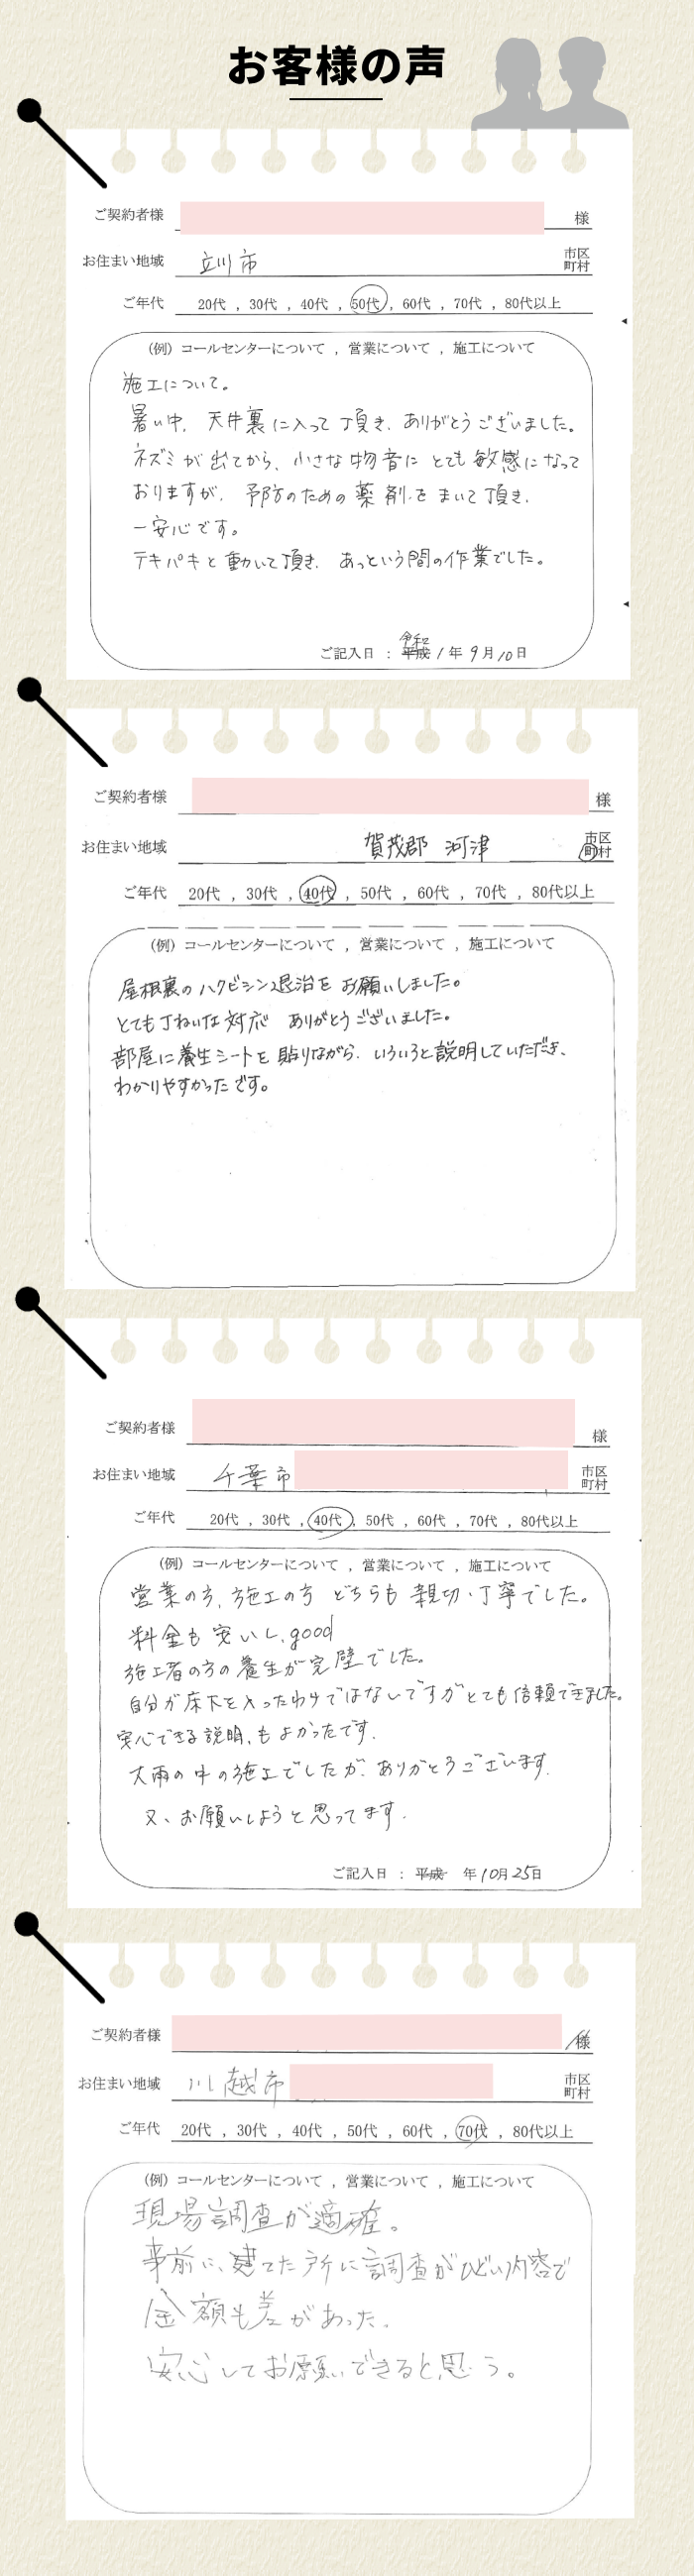 お客様の声
ご契約者様 様
お住まい地域 立川市 市区町村
ご年代 20代 , 30代 , 40代 , 50代 , 60代 , 70代 , 80代以上
(例) コールセンターについて , 営業について , 施工について
施工について。
暑い中、天井裏に入って頂き、ありがとうございました。
ネズミが出てから、小さな物音にとても敏感になって
おりますが、予防のための薬剤をまいて頂き、
一安心です。
テキパキと動いて頂き、あっという間の作業でした。
令和
ご記入日 : 平成 1年 9月 10日
ご契約者様 様
お住まい地域 賀茂郡 河津 市区町村
ご年代 20代 , 30代 , 40代 , 50代 , 60代 , 70代 , 80代以上
(例) コールセンターについて , 営業について , 施工について
屋根裏のハクビシン退治をお願いしました。
とても丁ねいな対応 ありがとうございました。
部屋に養生シートを貼りながら、いろいろと説明していただき、
わかりやすかったです。
ご契約者様 様
お住まい地域 千葉市 市区町村
ご年代 20代 , 30代 , 40代 , 50代 , 60代 , 70代 , 80代以上
(例) コールセンターについて , 営業について , 施工について
営業の方、施工の方 どちらも 親切・丁寧でした。
料金も安いし、good
施工者の方の養生が完璧でした。
自分が床下を入ったわけではないですがとても信頼できました。
安心できる説明、もよかったです.
大雨の中の施工でしたが、ありがとうございます.
又、お願いしようと思ってます.
ご記入日 : 平成 年 10月 25日
ご契約者様 様
お住まい地域 川越市 市区町村
ご年代 20代 , 30代 , 40代 , 50代 , 60代 , 70代 , 80代以上
(例) コールセンターについて , 営業について , 施工について
現場調査が適確。
事前に、建てた所に調査がひどい内容で
金額も差があった.
安心してお願いできると思う。